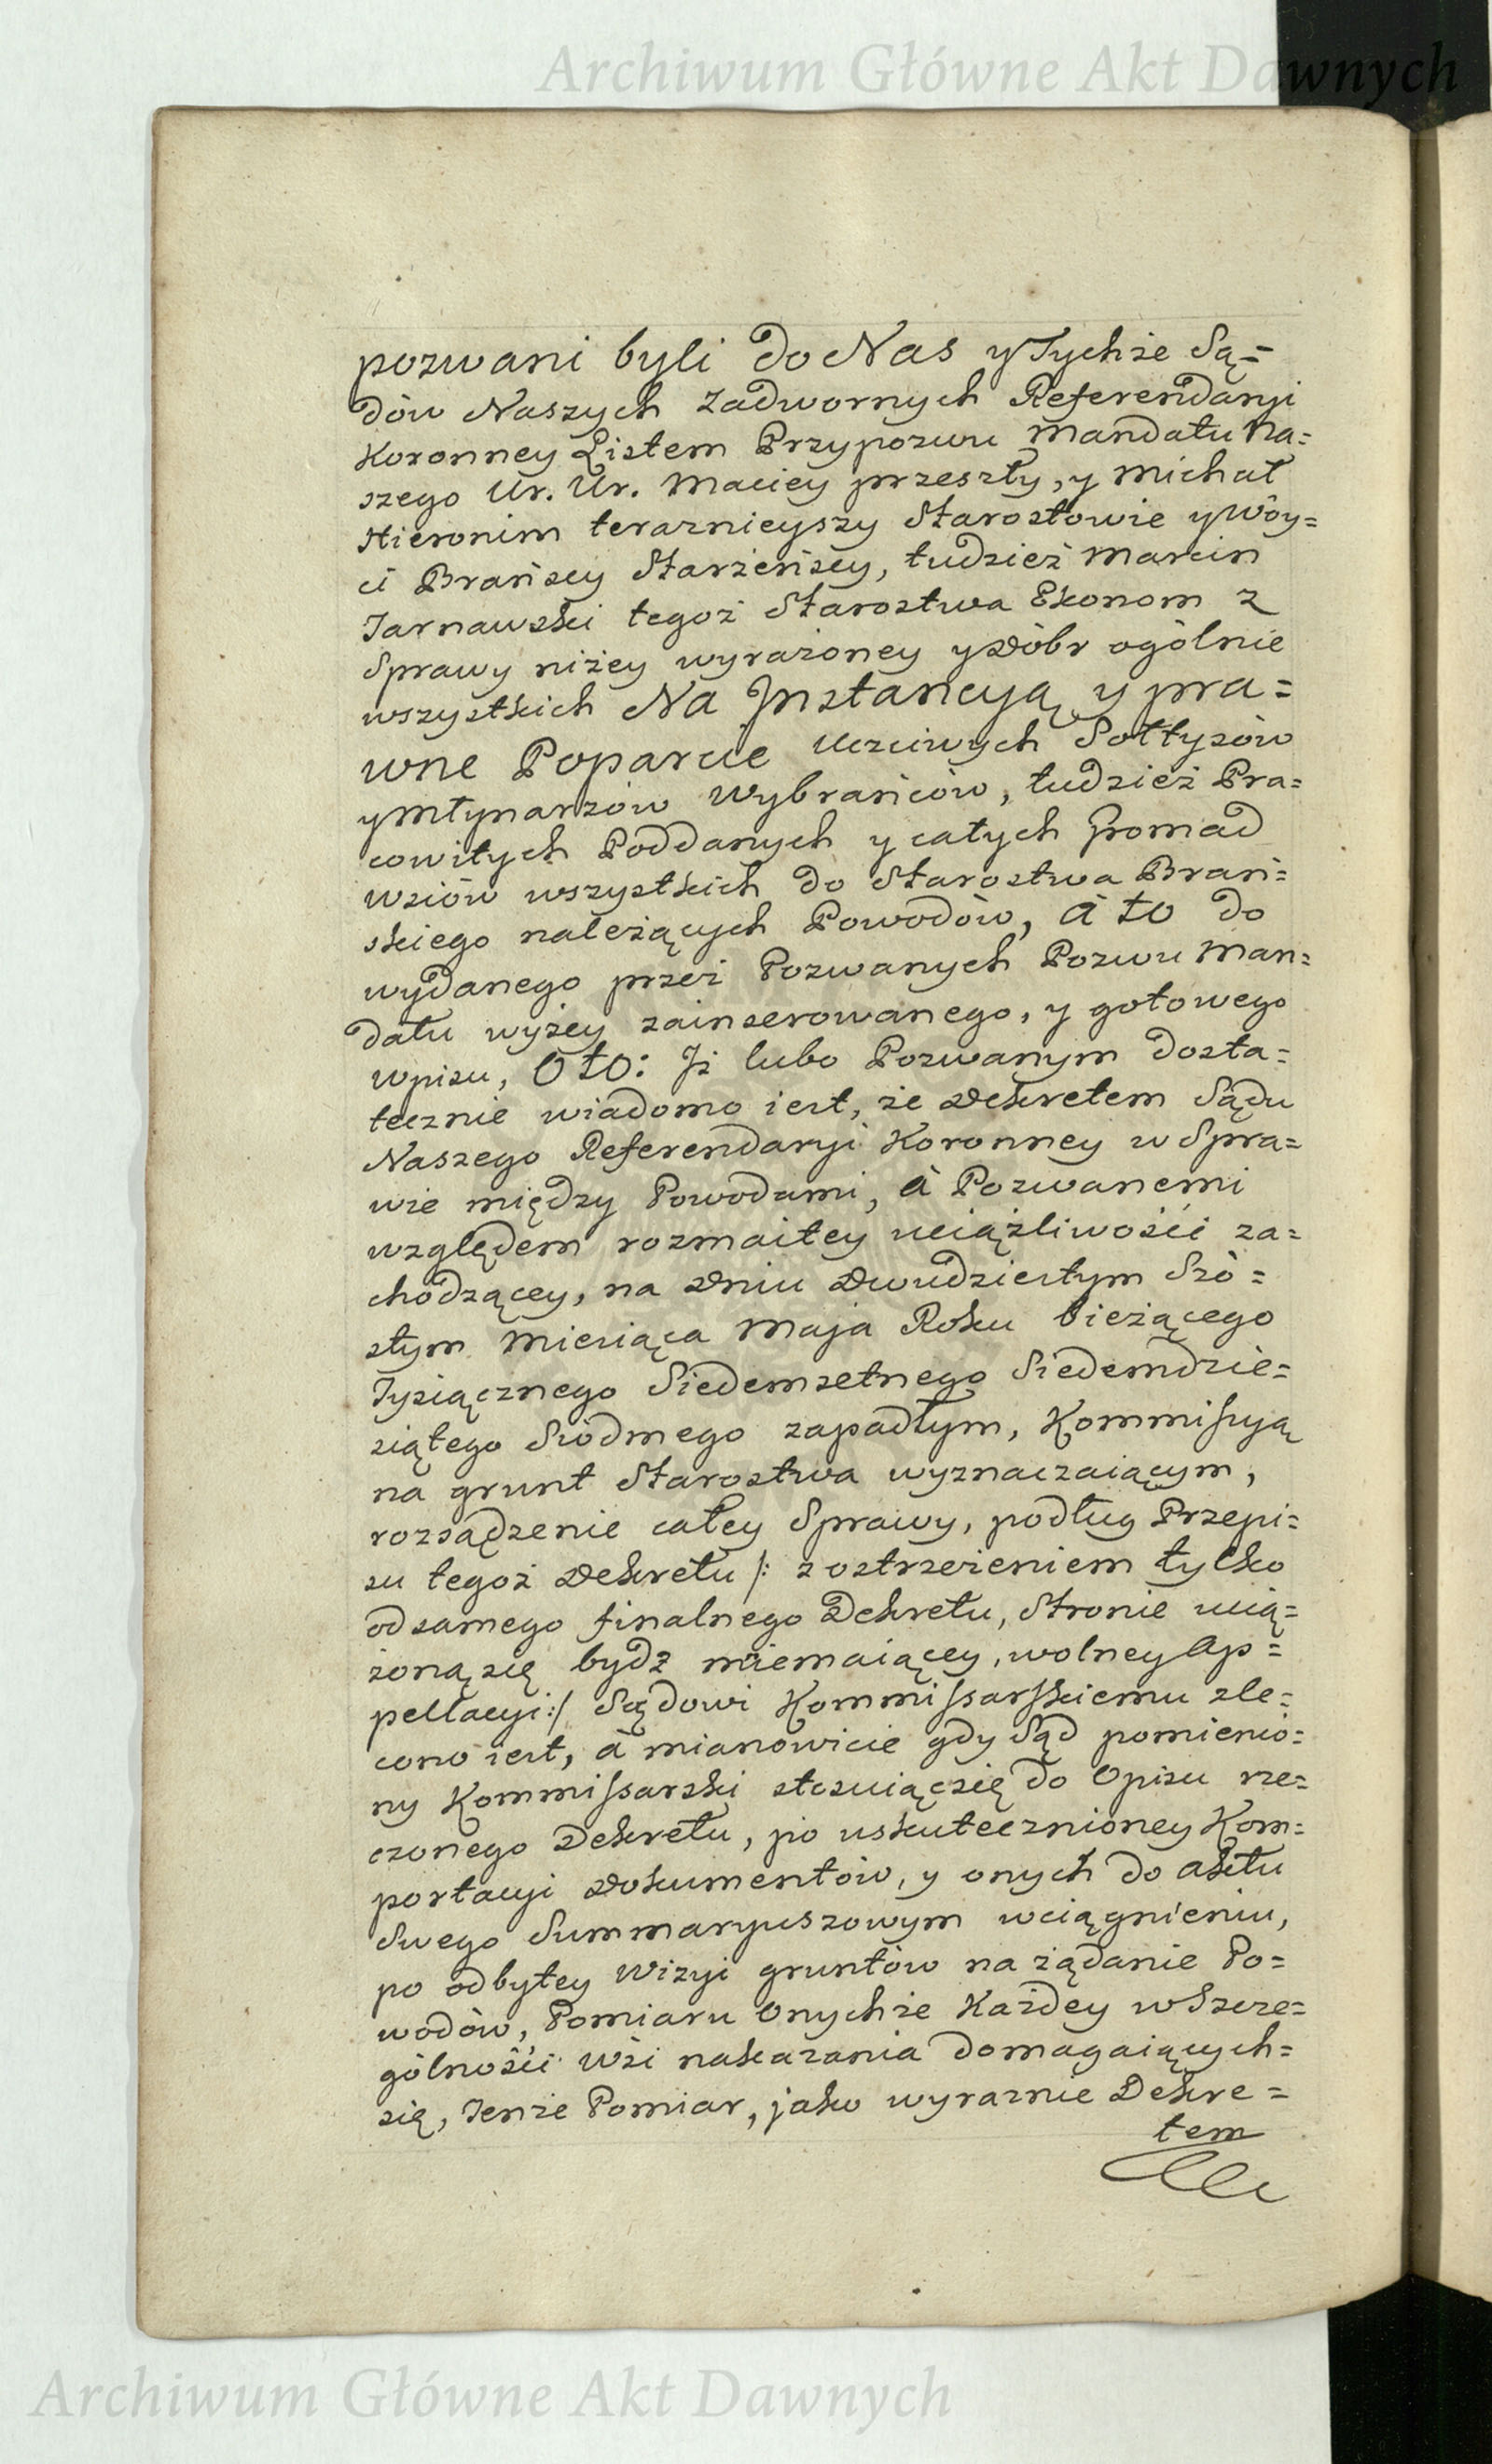 Archiwum Główne Akt Dawnych
pozwani byli do Nas y Tychże Są=
dów Naszych Zadwornych Referendaryi
Koronney Listem Przypozwu Mandatu Na=
szego Ur. Ur. Maciey przeszły, y Michał
Hieronim teraznieyszy Starostowie y Wóy=
ci Brańscy Starzeńscy, tudzież Marcin
Tarnawski tegoż Starostwa Ekonom z
Sprawy niżey wyrażoney y Dóbr ogólnie
wszystkich Na Jnstancyą y pra=
wne Poparcie Uczciwych Sołtysów
y Młynarzów Wybrańców, tudzież Pra=
cowitych Poddanych y całych Gromad
wsiów wszystkich do Starostwa Brań=
skiego należących Powodów, á to do
wydanego przez Pozwanych Pozwu Man=
datu wyżey zainserowanego, y gotowego
wpisu, Oto: Jż lubo Pozwanym dosta=
tecznie wiadomo iest, że Dekretem Sądu
Naszego Referendaryi Koronney w Spra=
wie między Powodami, á Pozwanemi
względem rozmaitey uciążliwości za=
chodzącey, na Dniu Dwudziestym Szó=
stym Miesiąca Maja Roku bieżącego
Tysiącznego Siedemsetnego Siedemdzie=
siątego Siódmego zapadłym, Kommissyą
na grunt Starostwa wyznaczaiącym,
rozsądzenie całey Sprawy, podług Przepi=
su tegoż Dekretu /: z ostrzeżeniem tylko
od samego finalnego Dekretu, Stronie ucią=
żoną się bydź mniemaiącey, wolney Ap=
pellacyi :/ Sądowi Kommissarskiemu zle=
cono iest, á mianowicie gdy Sąd pomienio=
ny Kommissarski stosuiąc się do Opisu rze=
czonego Dekretu, po uskutecznioney Kom=
portacyi Dokumentów, y onych do Aktu
Swego Summaryuszowym wciągnieniu,
po odbytey Wizyi gruntów na żądanie Po=
wodów, Pomiaru Onychże Każdey w Szcze=
gólności Wsi nakazania domagaiących=
się, Tenże Pomiar, jako wyraznie Dekre=
tem
Archiwum Główne Akt Dawnych